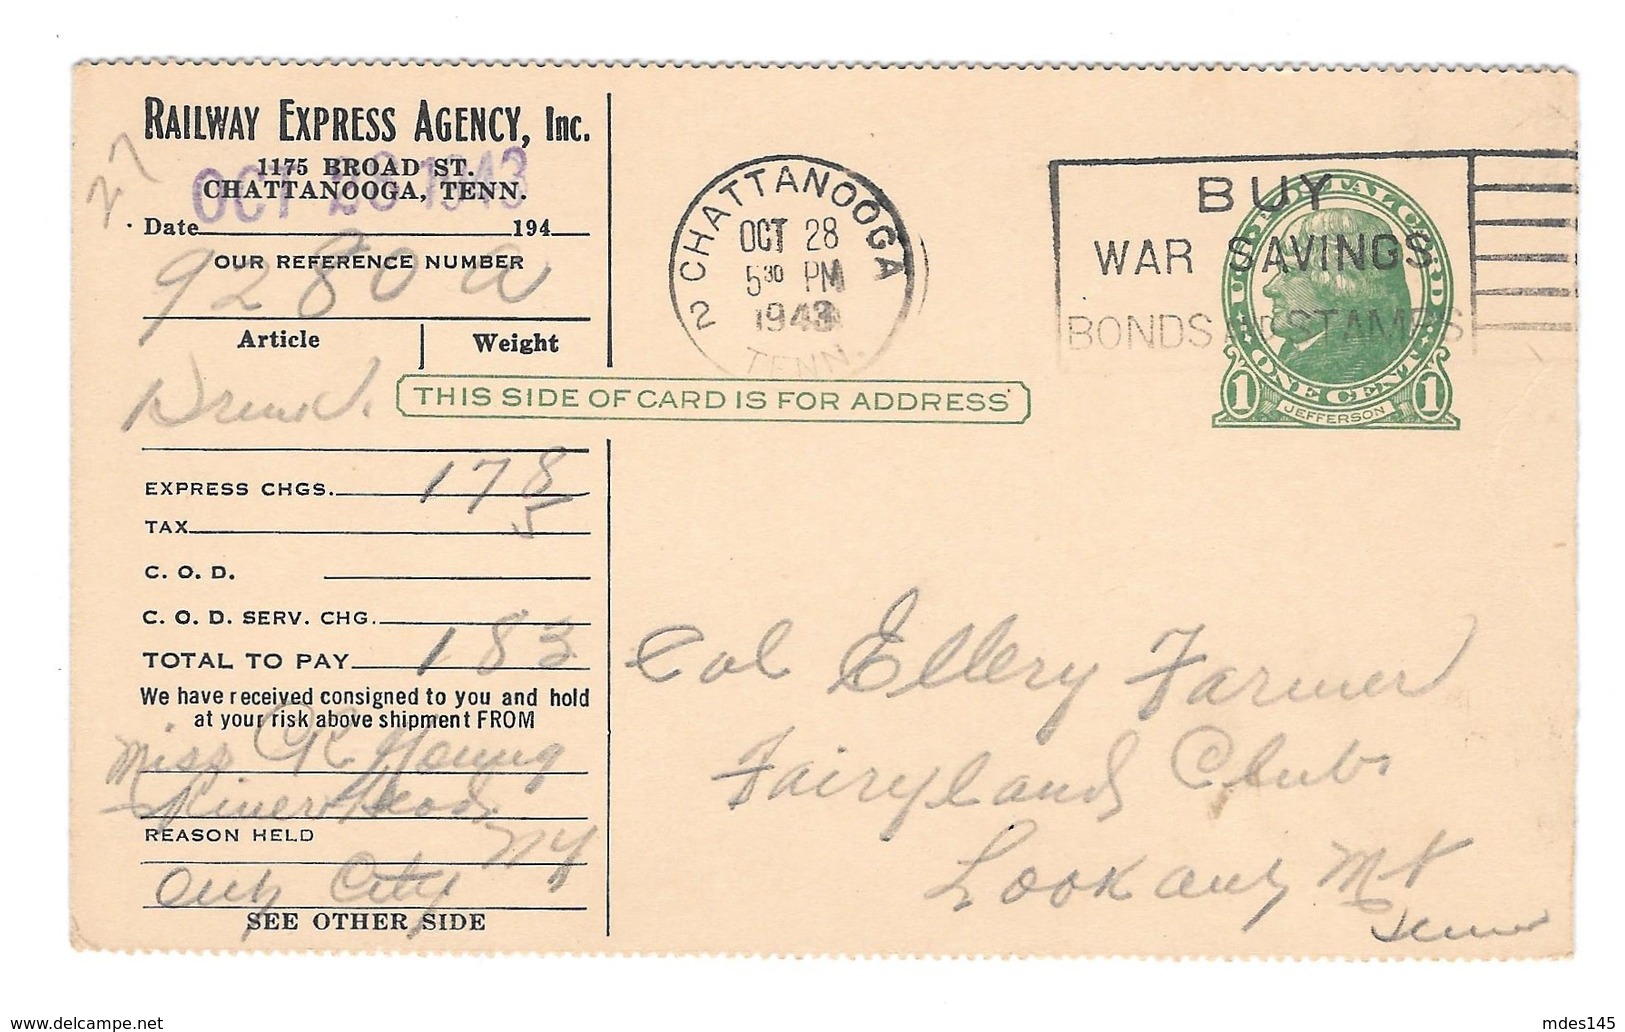 RAILWAY EXPRESS AGENCY, Inc.
1175 BROAD ST.
CHATTANOOGA, TENN.
OCT 28 1943
27
Date 194
OUR REFERENCE NUMBER
9280
Article Weight
THIS SIDE OF CARD IS FOR ADDRESS
EXPRESS CHGS. 178
TAX 5
C. O. D.
C. O. D. SERV. CHG.
TOTAL TO PAY 183
We have received consigned to you and hold
at your risk above shipment FROM
Miss Young
River Head
NY
REASON HELD
Out City
SEE OTHER SIDE
CHATTANOOGA
OCT 28
5 30 PM
1943
2 TENN.
BUY
WAR SAVINGS
BONDS AND STAMPS
U.S. POSTAL CARD
ONE CENT
1 JEFFERSON 1
Col Ellery Farmer
Fairyland Club
Lookout Mt
Tenn
delcampe.net
mdes145